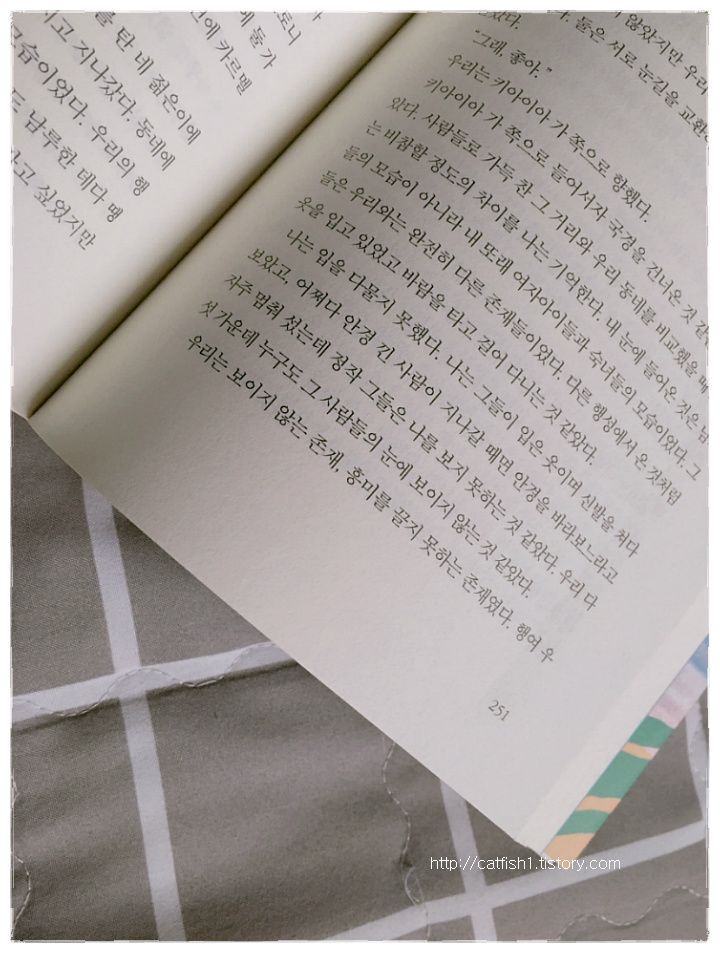 토니
에 둘 가
건에 카르멜
를 탄 네 젊은이에
지고 지나갔다. 동네에
모습이었다. 우리의 행
도 남루한 데다 땡
하고 싶었지만
않았지만 우리
둘은 서로 눈길을 교환
"그래, 좋아."
우리는 키아이아 가 쪽으로 향했다.
키아이아 가 쪽으로 들어서자 국경을 건너온 것 같
았다. 사람들로 가득 찬 그 거리와 우리 동네를 비교했을 때
는 비참할 정도의 차이를 나는 기억한다. 내 눈에 들어온 것은 남
들의 모습이 아니라 내 또래 여자아이들과 숙녀들의 모습이었다. 그
들은 우리와는 완전히 다른 존재들이었다. 다른 행성에서 온 것처럼
옷을 입고 있었고 바람을 타고 걸어 다니는 것 같았다.
나는 입을 다물지 못했다. 나는 그들이 입은 옷이며 신발을 쳐다
보았고, 어쩌다 안경 낀 사람이 지나갈 때면 안경을 바라보느라고
자주 멈춰 섰는데 정작 그들은 나를 보지 못하는 것 같았다. 우리 다
섯 가운데 누구도 그 사람들의 눈에 보이지 않는 것 같았다.
우리는 보이지 않는 존재, 흥미를 끌지 못하는 존재였다. 행여 우
251
http://catfish1.tistory.com